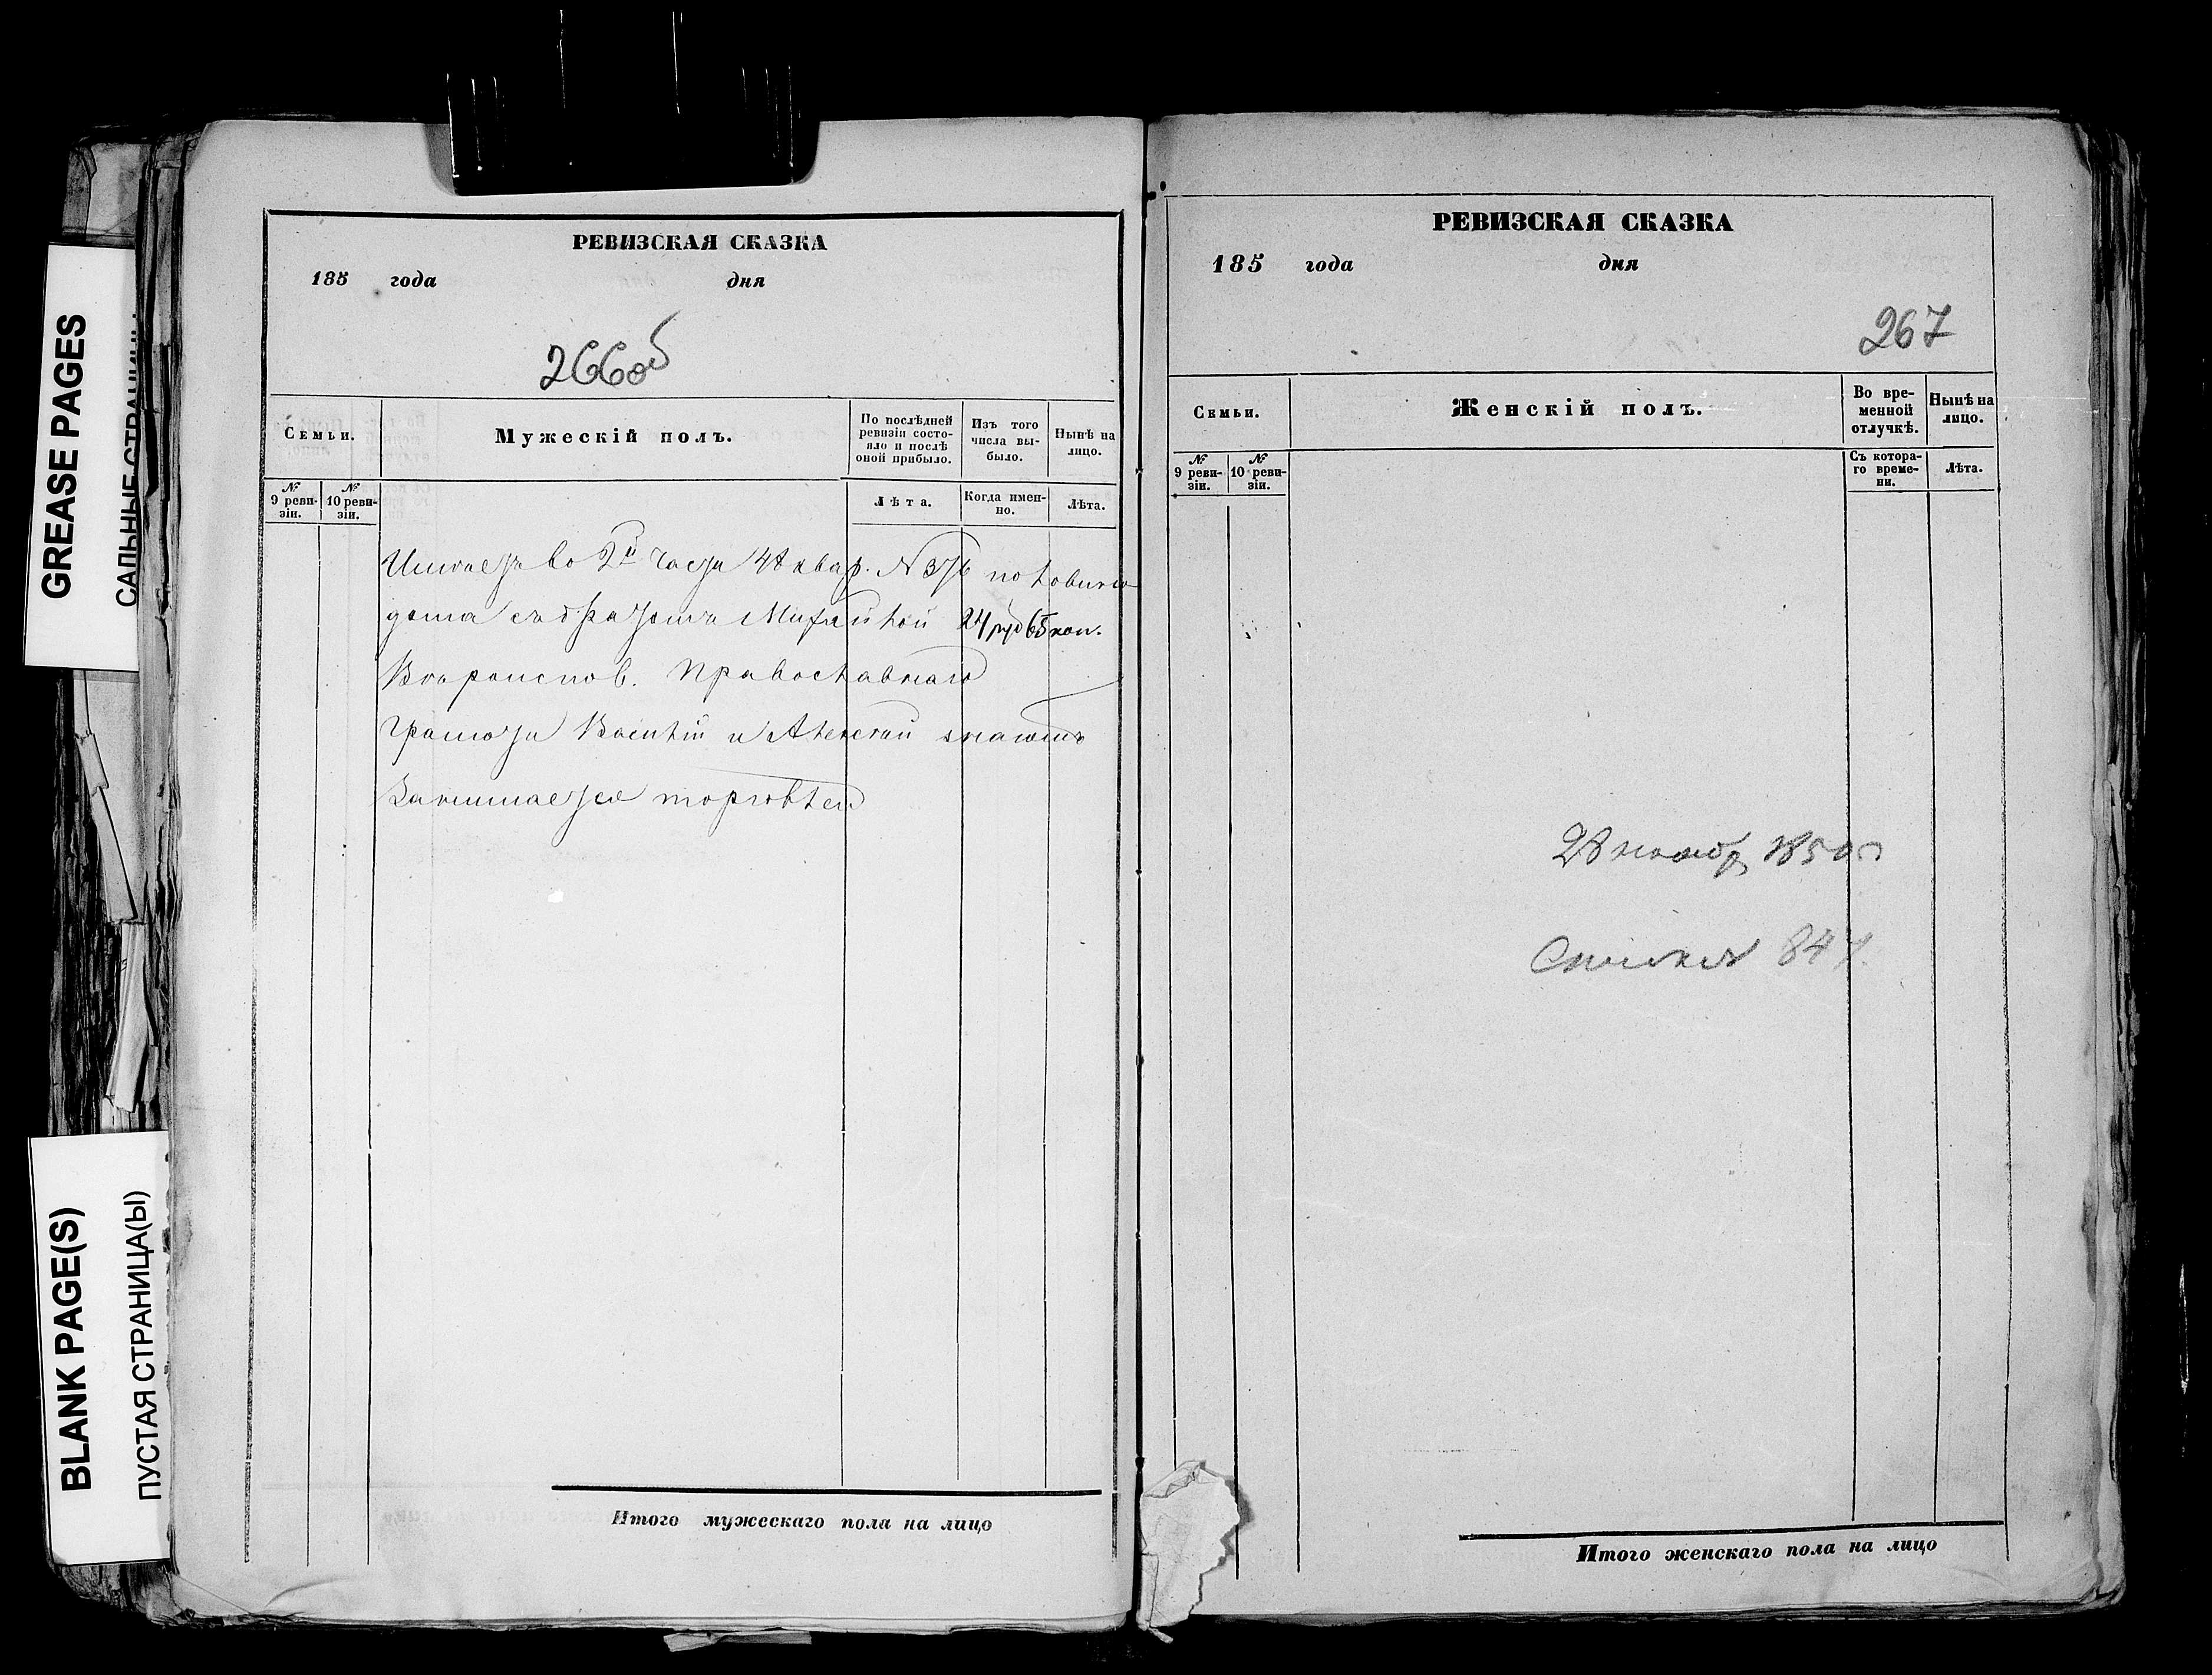 GREASE PAGES
САЛЬНЫЕ СТРАНИЦЫ
BLANK PAGE(S)
ПУСТАЯ СТРАНИЦА(Ы)
РЕВИЗСКАЯ СКАЗКА
185 года дня
266об
Семьи.
Мужескій полъ.
По послѣдней ревизіи состо-
яло и послѣ
оной прибыло.
Изъ того
числа вы-
было.
Нынѣ на
лицо.
№ 9 реви-
зіи.
№ 10 реви-
зіи.
Лѣта.
Когда имен-
но.
Лѣта.
Имѣетъ во 2й части 4 квар. N 376 половину
дома съ братомъ 24 руб 65 коп.
Вѣроиспов. Православнаго
Грамоти Василій и Алексѣй знаютъ
Занимается торговлей
Итого мужескаго пола на лицо
РЕВИЗСКАЯ СКАЗКА
185 года дня
267
Семьи.
Женскій полъ.
Во вре-
менной
отлучкѣ.
Нынѣ на
лицо.
№ 9 реви-
зіи.
№ 10 реви-
зіи.
Съ котора-
го време-
ни.
Лѣта.
28 1850
847
Итого женскаго пола на лицо